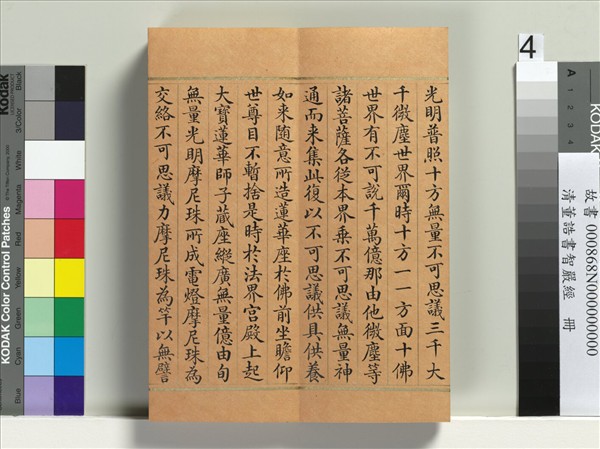 光明普照十方無量不可思議三千大
千微塵世界爾時十方一一方面十佛
世界有不可說千萬億那由他微塵等
諸菩薩各從本界乘不可思議無量神
通而来集此復以不可思議供具供養
如来随意所造蓮華座於佛前坐瞻仰
世尊目不暫捨是時於法界宮殿上起
大寶蓮華師子蔵座縱廣無量億由旬
無量光明摩尼珠所成電燈摩尼珠為
交絡不可思議力摩尼珠為竿以無譬
故書 000868N000000000
清董誥書智嚴經 冊
4
A
1
2
3
4
Kodak
KODAK Color Control Patches
Black
3/Color
White
Magenta
Red
Yellow
Green
Cyan
Blue